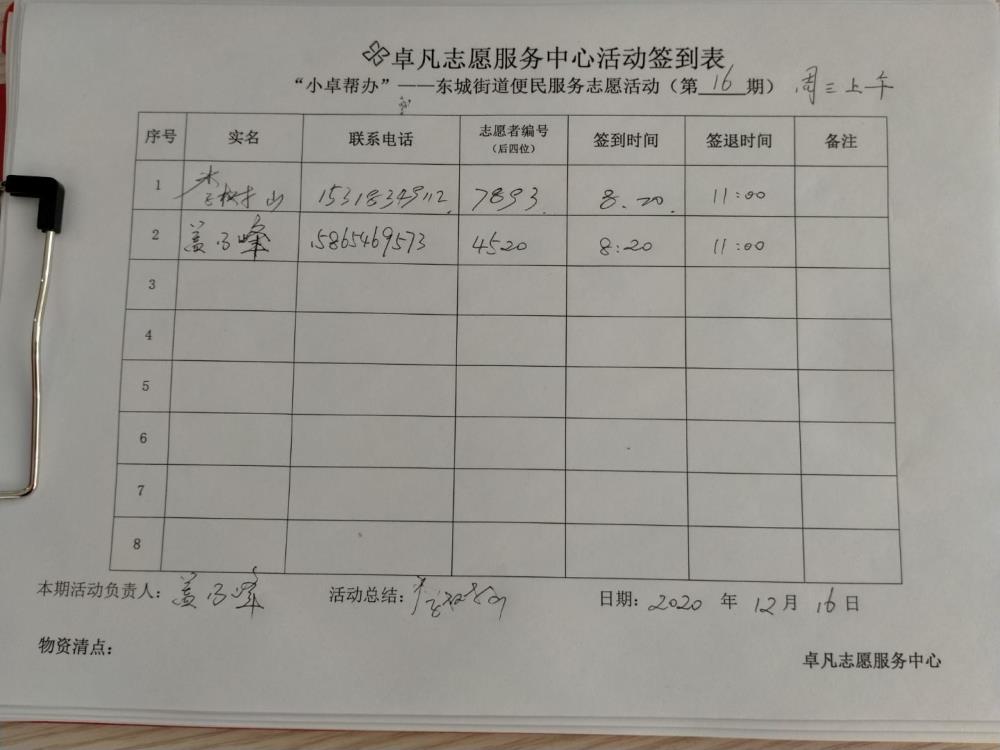 卓凡志愿服务中心活动签到表
“小卓帮办”——东城街道便民服务志愿活动（第16期） 周三上午
序号 实名 联系电话 志愿者编号（后四位） 签到时间 签退时间 备注
1 李树山 15318349112 7893 8.20 11:00
2 5865469573 4520 8:20 11:00
3
4
5
6
7
8
本期活动负责人： 活动总结： 日期：2020年12月16日
物资清点：
卓凡志愿服务中心